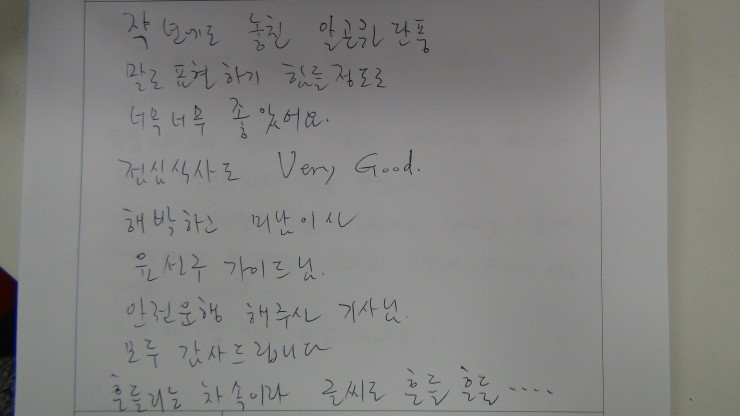 작년에도 놓친 알곤퀸 단풍
말로 표현하기 힘들정도로
너무너무 좋았어요.
점심식사도 Very Good.
해박하고 미남이신
윤선구 가이드님.
안전운행 해주신 기사님.
모두 감사드립니다
흔들리는 차속이라 글씨도 흔들 흔들 ....